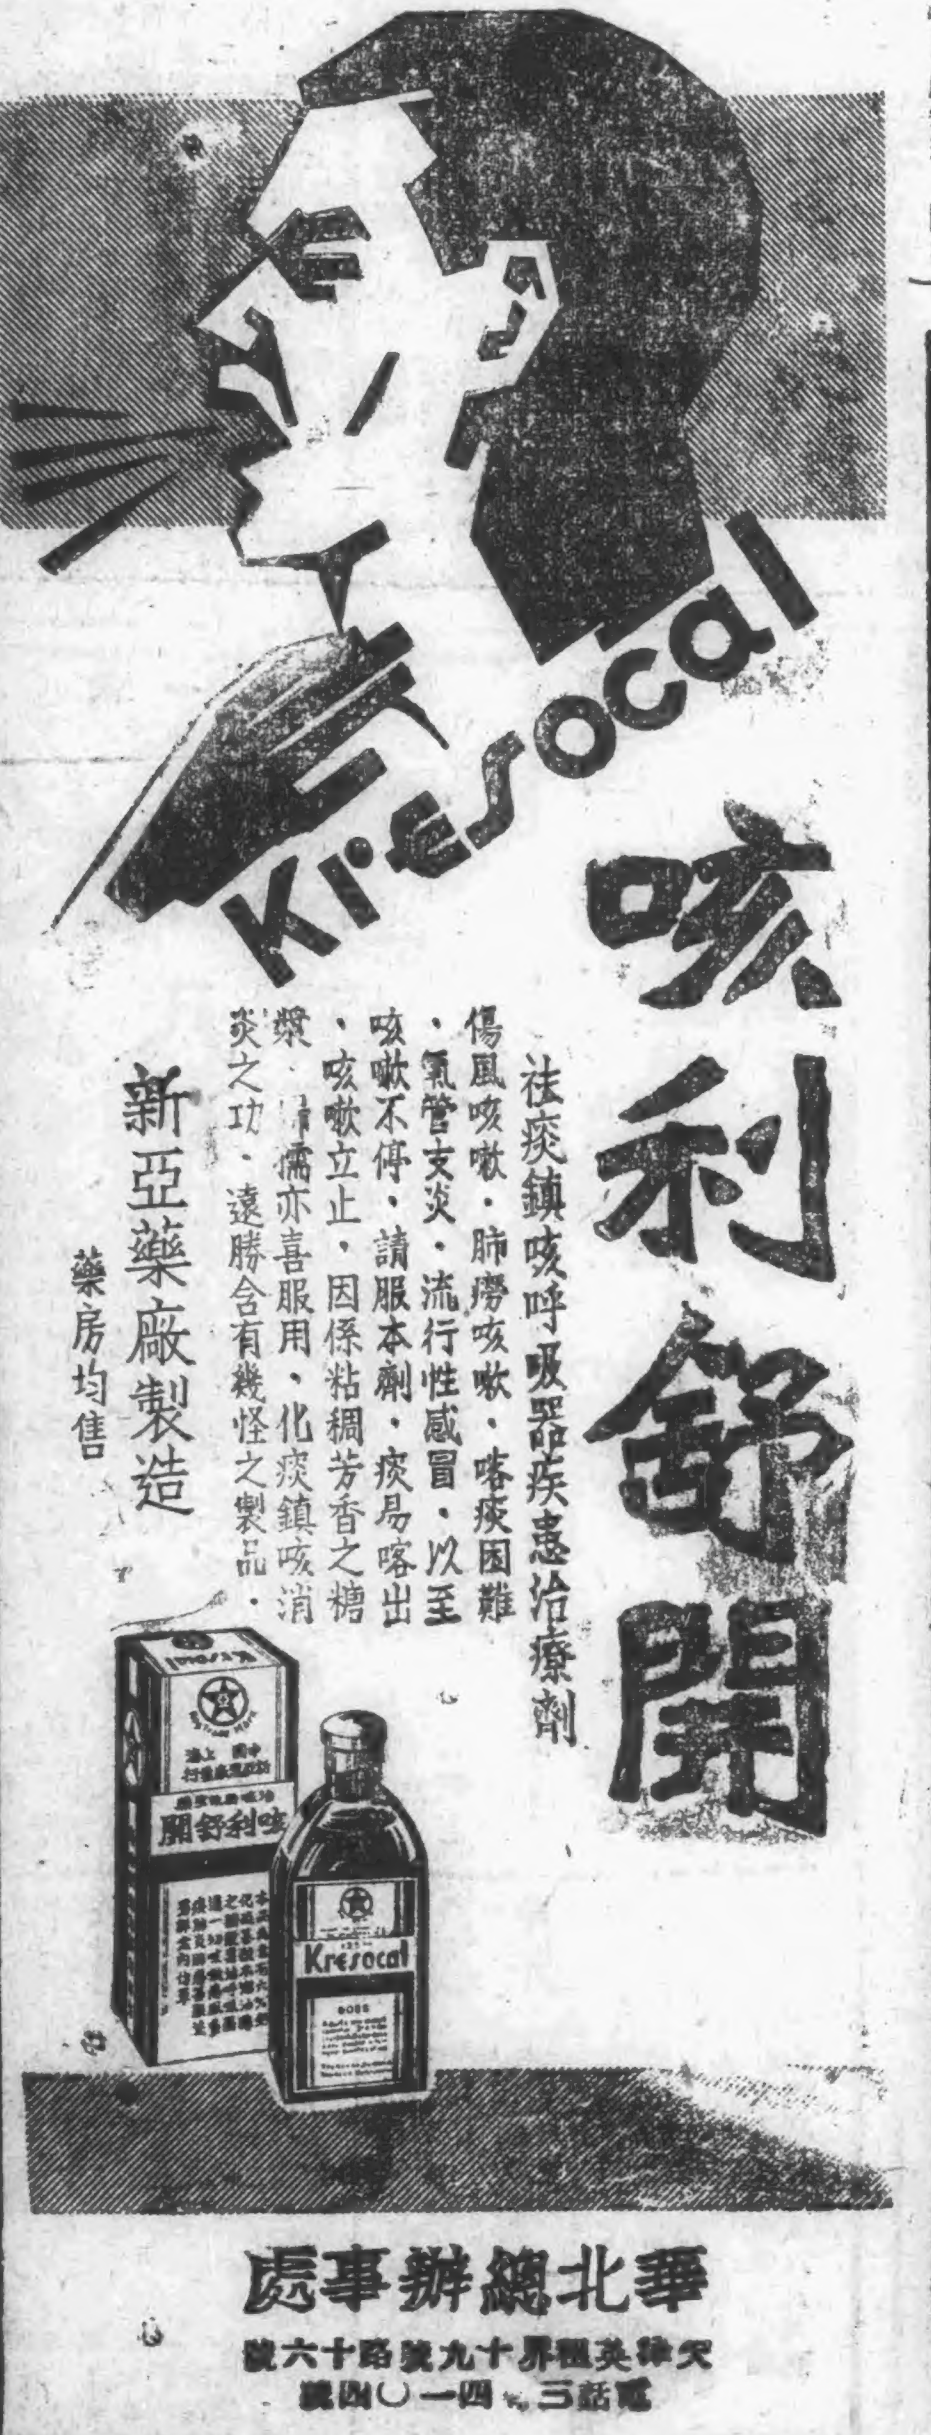 Kresocal
咳利舒開
祛痰鎮咳呼吸器疾患治療劑
傷風咳嗽．肺癆咳嗽．喀痰困難
．氣管支炎．流行性感冒．以至
咳嗽不停．請服本劑．痰易喀出
．咳嗽立止．因係粘稠芳香之糖
漿．孺亦喜服用．化痰鎮咳消
炎之功．遠勝含有幾怪之製品．
新亞藥廠製造
藥房均售
Kresocal
咳利舒開
Kresocal
華北總辦事處
天津英租界十九號路十六號
電話三．四一〇四號